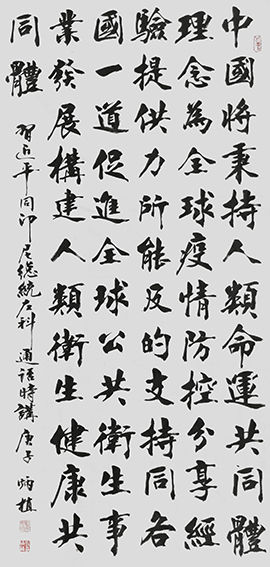 中國將秉持人類命運共同體
理念為全球疫情防控分享經
驗提供力所能及的支持同各
國一道促進全球公共衛生事
業發展構建人類衛生健康共
同體
習近平同印尼總統左科通話時講庚子炳植